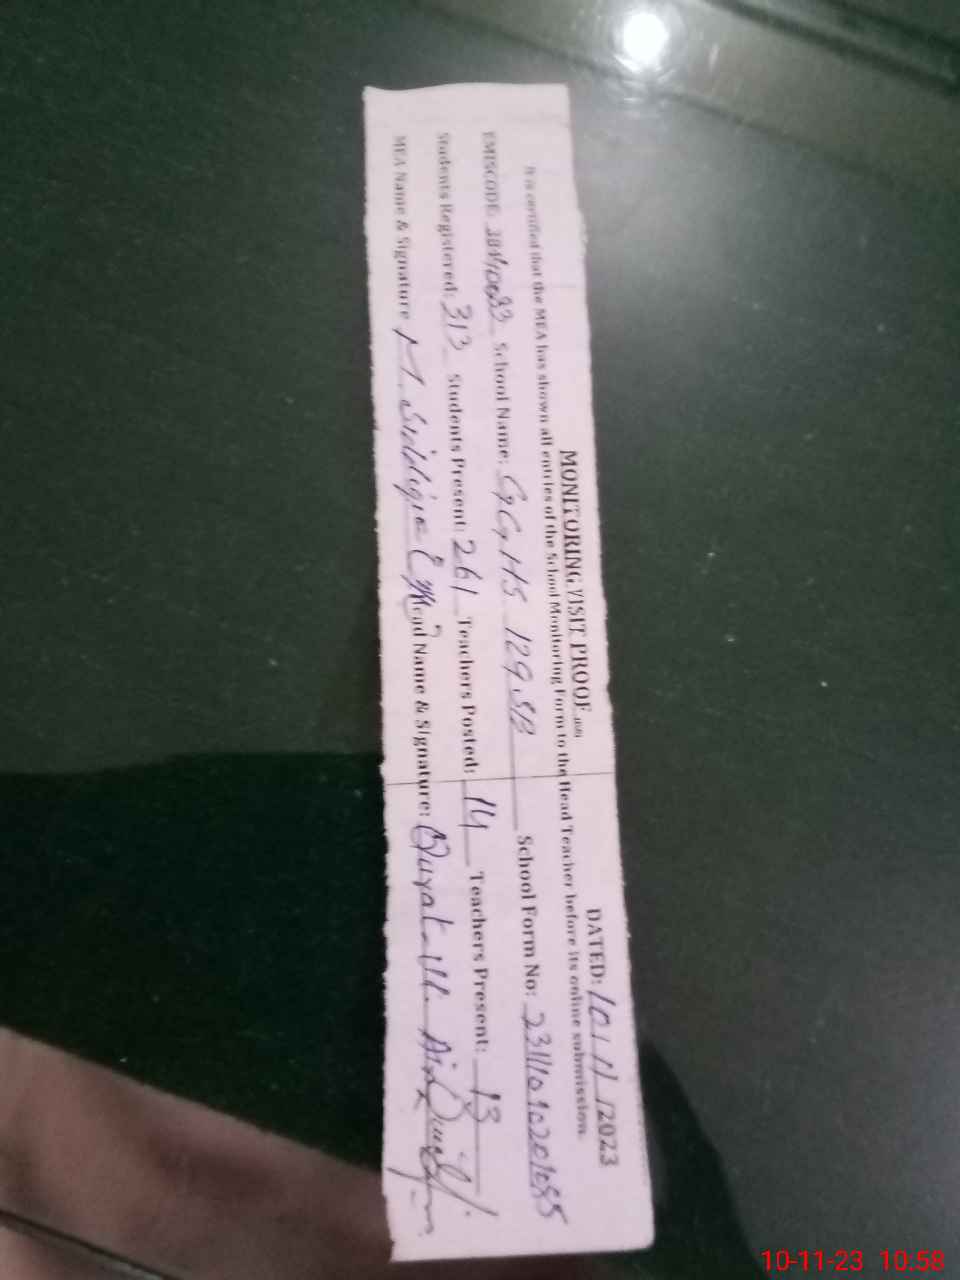 MONITORING VISIT PROOF DATED: 10/11/2023
It is certified that the MEA has shown all entries of the School Monitoring Form to the Head Teacher before its online submission.
EMISCODE: School Name: GGHS 129 SB School Form No:
Students Registered: 313 Students Present: 261 Teachers Posted: 14 Teachers Present: 13
MEA Name & Signature M. Siddique Head Name & Signature: Qurat-Ul-Ain
10-11-23 10:58